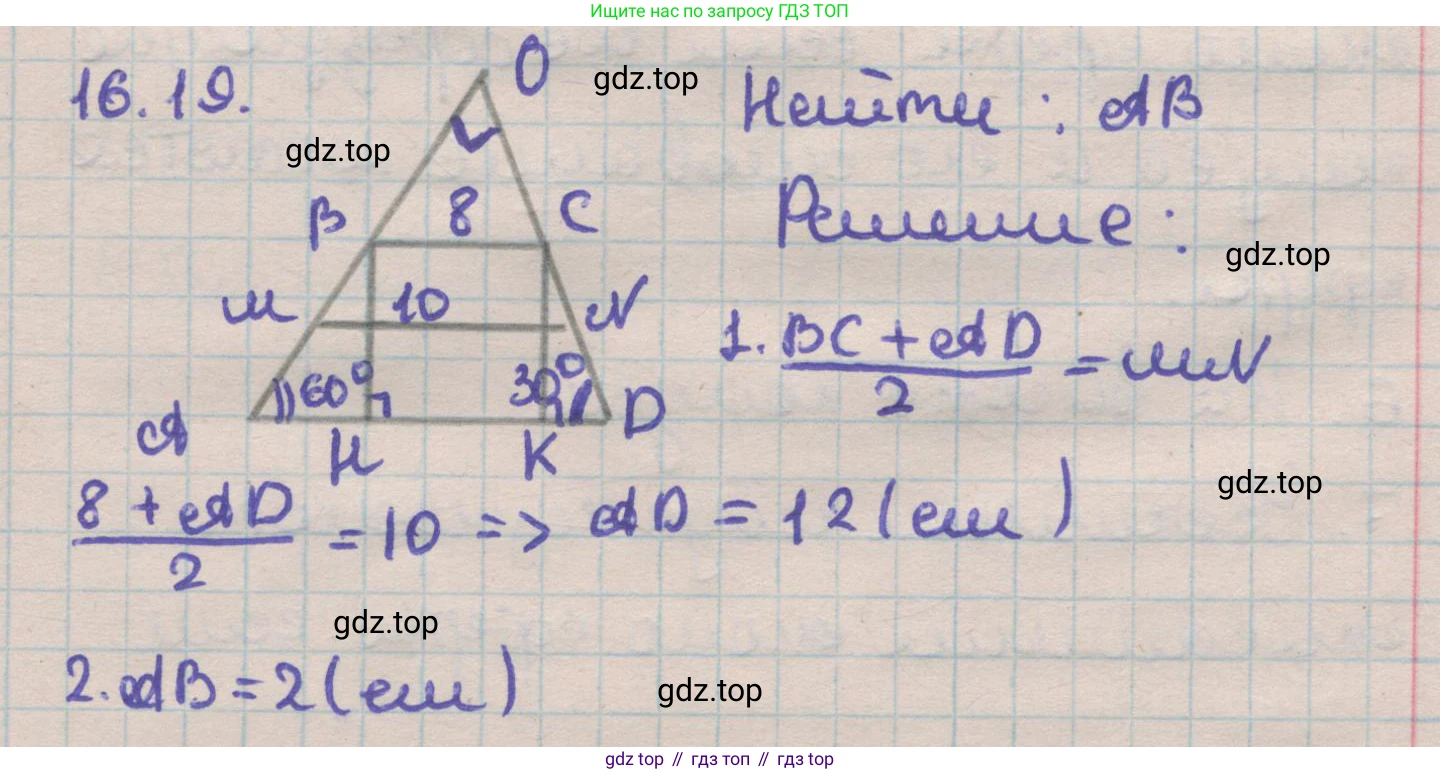 Ищите нас по запросу ГДЗ ТОП
16.19.
O
gdz.top
Найти : AB
gdz.top
B
8
C
Решение :
gdz.top
M
10
N
1. BC + AD / 2 = MN
60°
30°
A
H
K
D
8 + AD / 2 = 10 => AD = 12 (см)
gdz.top
gdz.top
2. AB = 2 (см)
gdz.top
gdz top // гдз топ // гдз top